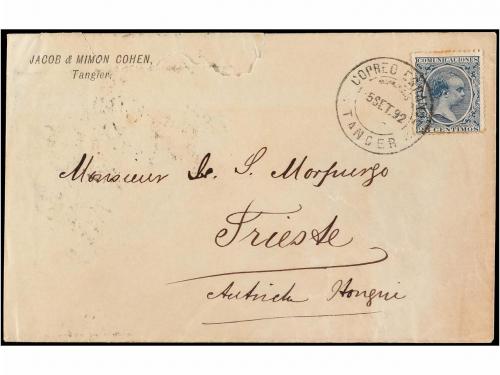 JACOB & MIMON COHEN,
Tangier.
COMUNICACIONES
CORREO ESPAÑOL
5 SET. 92
TANGER
25 CENTIMOS
Monsieur S. Morpurgo
Trieste
Autriche Hongrie